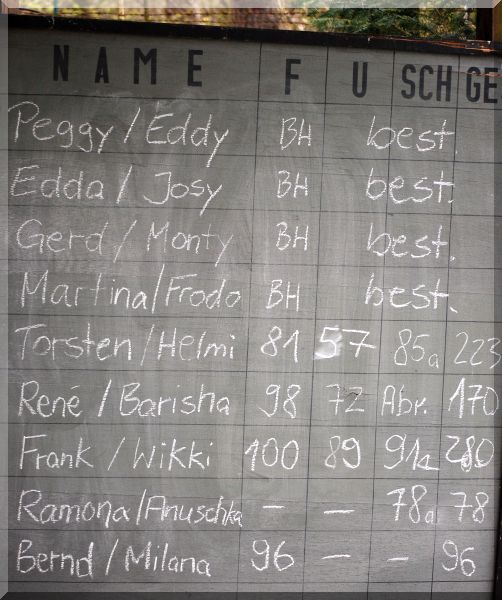 NAME F U SCH GE
Peggy / Eddy BH best.
Edda / Josy BH best.
Gerd / Monty BH best.
Martina / Frodo BH best.
Torsten / Helmi 81 57 85a 223
René / Barisha 98 72 Abr. 170
Frank / Wikki 100 89 91a 280
Ramona / Anuschka – – 78a 78
Bernd / Milana 96 – – 96